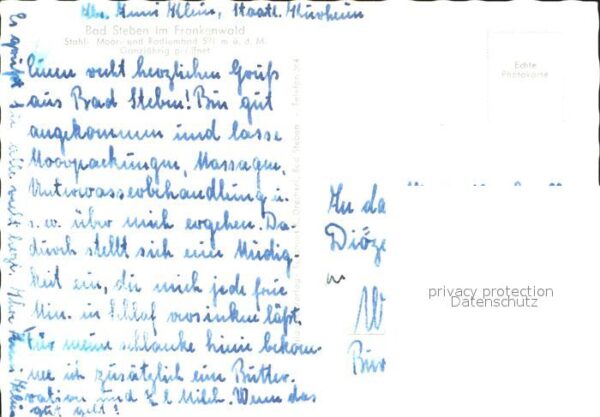 Abs. Anni Klein, Staatl. Kurheim
Bad Steben im Frankenwald
Stahl-, Moor- und Radiumbad 580 m ü. d. M.
Ganzjährig geöffnet
Echte
Photokarte
Einen recht herzlichen Gruß
aus Bad Steben! Bin gut
angekommen und lasse
Moorpackungen, Massagen,
Unterwasserbehandlung u.
s. w. über mich ergehen. Da-
durch stellt sich eine Müdig-
keit ein, die mich jede freie
Min. in Schlaf versinken läßt.
Für meine schlanke Linie bekom-
me ich zusätzlich eine Butter-
ration und ½ l Milch. Wenn das
gut geht!
Es grüßt Sie alle recht herzl. Ihre Anni Klein
An da
Diöze
W
Bur
privacy protection
Datenschutz